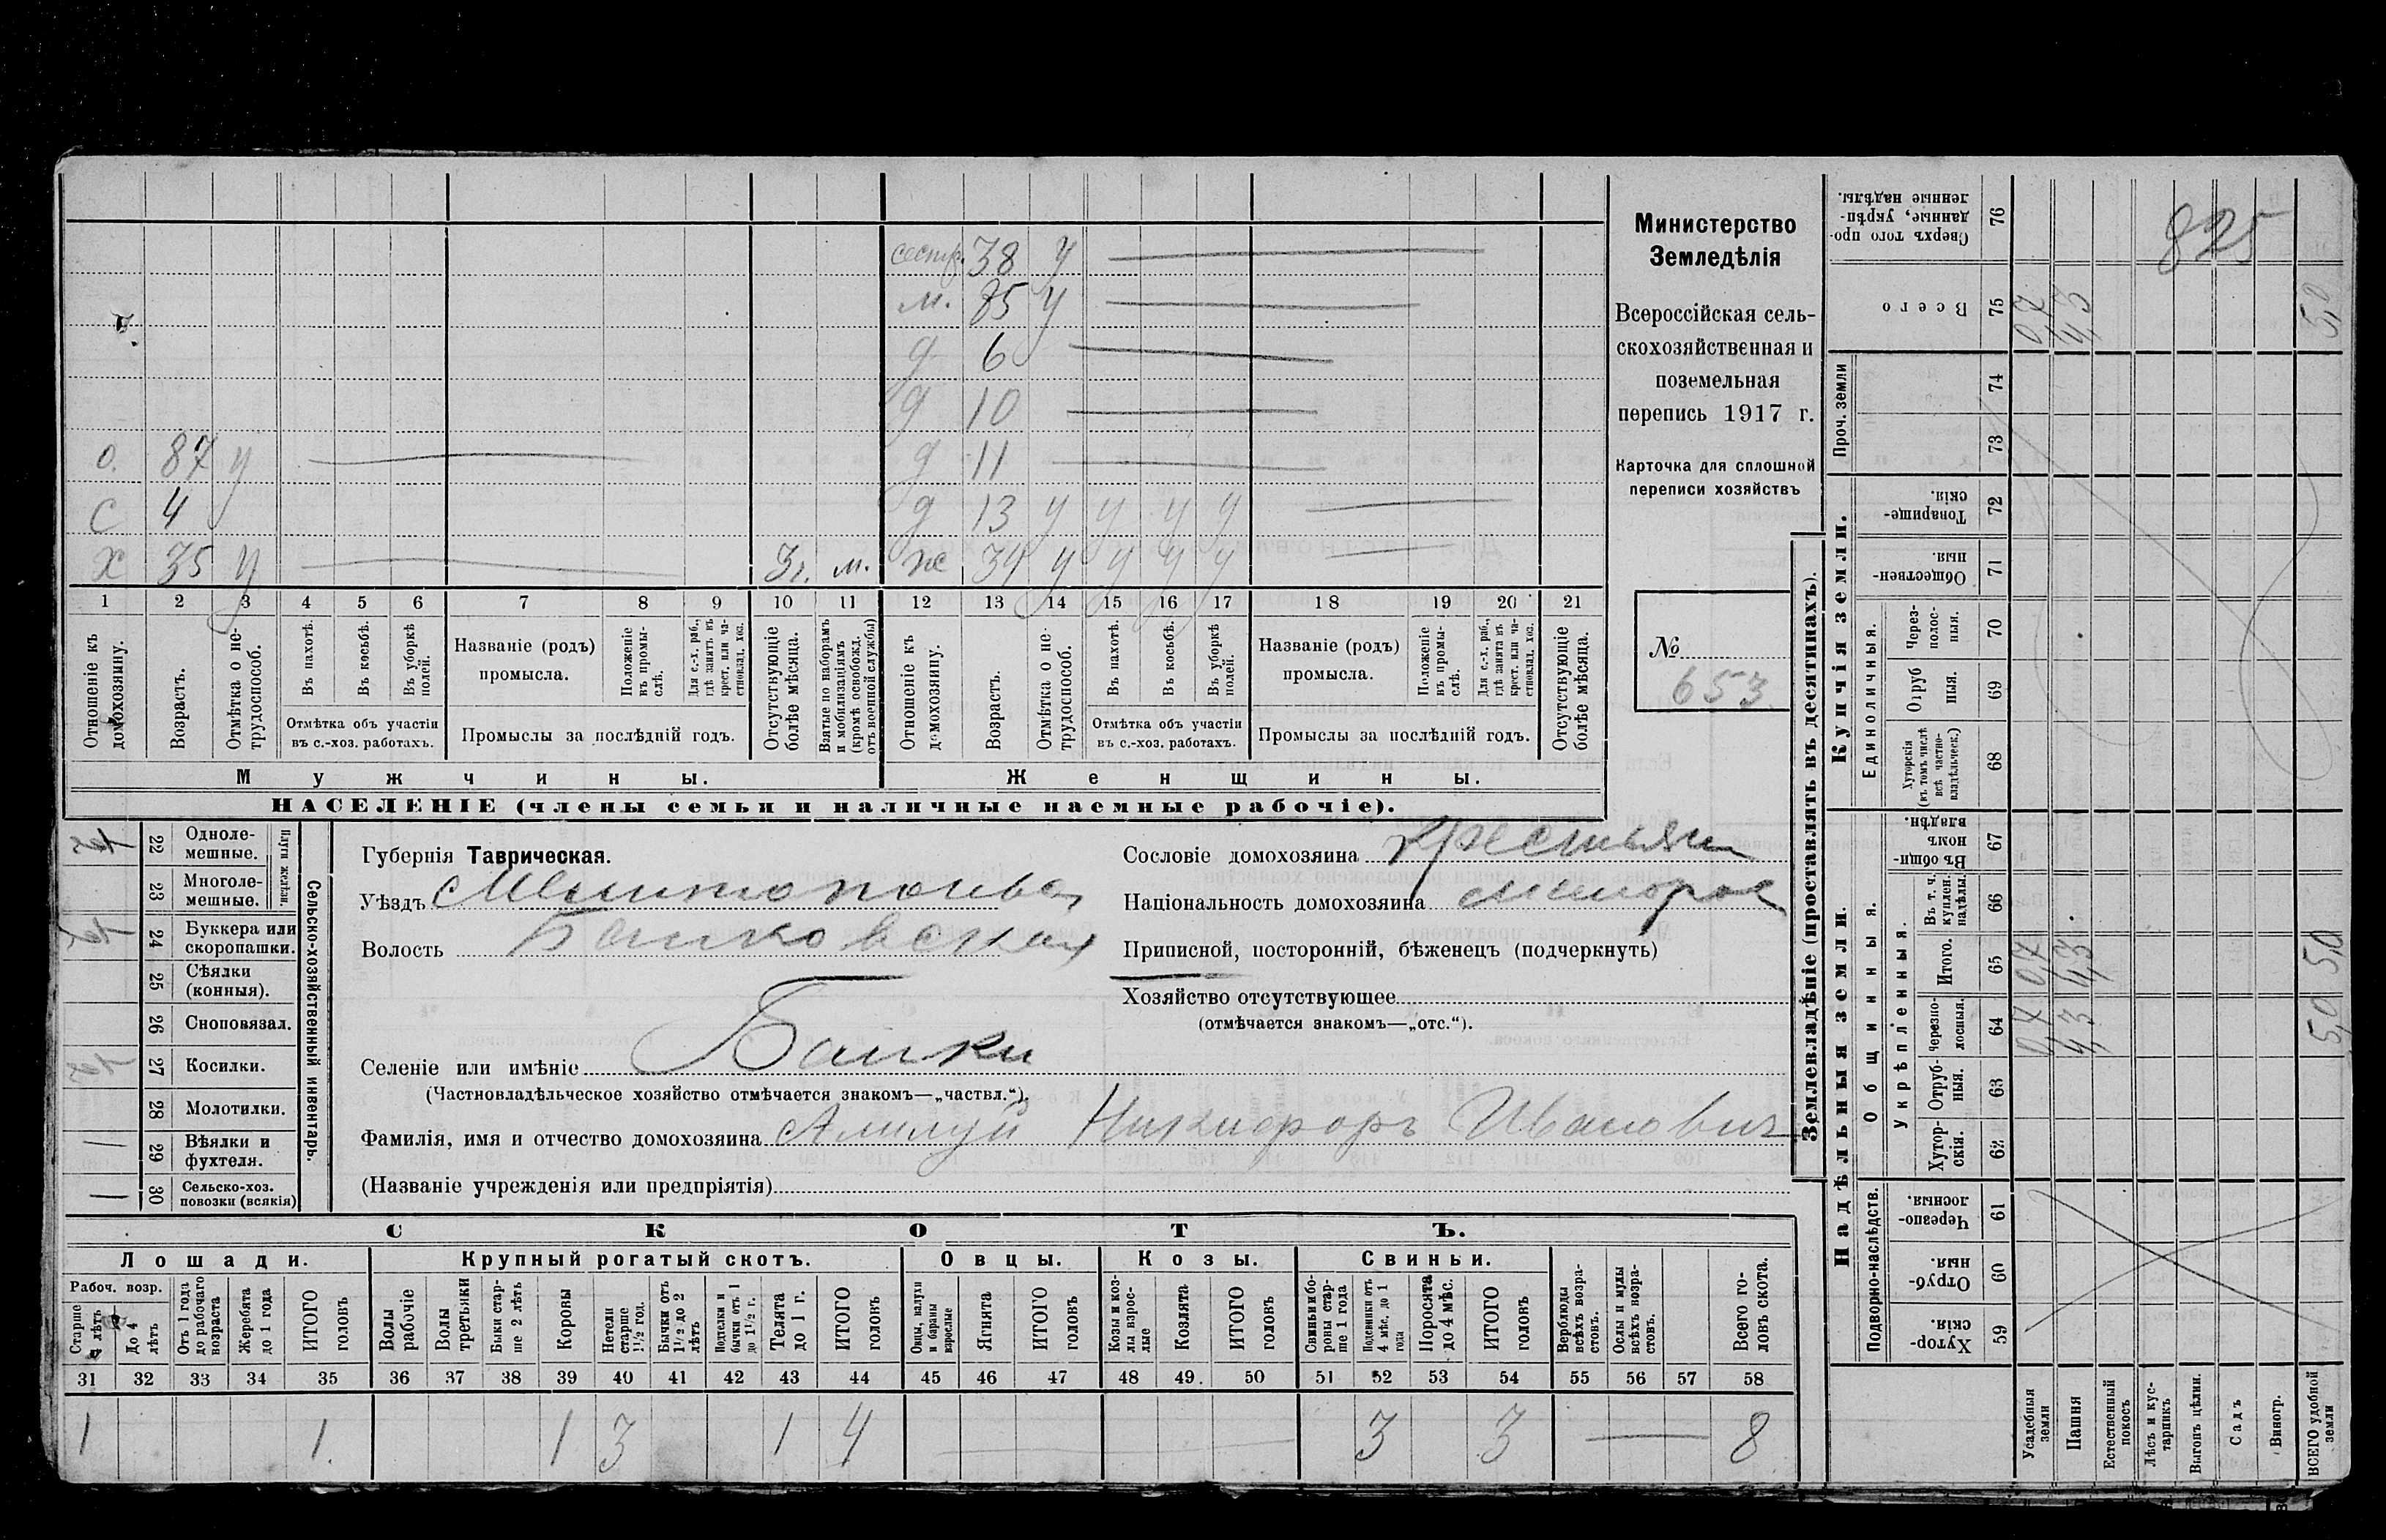 сестр. 38 у
м. 85 у
д 6
д 10
о. 87 у д 11
с 4 д 13 у у у у
х 35 у 3 г. м. ж 34 у у у у
1 2 3 4 5 6 7 8 9 10 11 12 13 14 15 16 17 18 19 20 21
Отношеніе къ домохозяину.
Возрастъ.
Отмѣтка о нетрудоспособ.
Въ пахотѣ.
Въ косьбѣ.
Въ уборкѣ полей.
Отмѣтка объ участіи
въ с.-хоз. работахъ.
Названіе (родъ)
промысла.
Положеніе въ промыслѣ.
Для с.-х. раб., гдѣ занятъ въ крест. или частновлад. хоз.
Промыслы за послѣдній годъ.
Отсутствующіе болѣе мѣсяца.
Взятые по наборамъ и мобилизаціямъ (кромѣ освобожд. отъ военной службы)
Отношеніе къ домохозяину.
Возрастъ.
Отмѣтка о нетрудоспособ.
Въ пахотѣ.
Въ косьбѣ.
Въ уборкѣ полей.
Отмѣтка объ участіи
въ с.-хоз. работахъ.
Названіе (родъ)
промысла.
Положеніе въ промыслѣ.
Для с.-х. раб., гдѣ занята въ крест. или частновлад. хоз.
Промыслы за послѣдній годъ.
Отсутствующіе болѣе мѣсяца.
Мужчины.
Женщины.
НАСЕЛЕНІЕ (члены семьи и наличные наемные рабочіе).
Министерство
Земледѣлія
Всероссійская сель-
скохозяйственная и
поземельная
перепись 1917 г.
Карточка для сплошной
переписи хозяйствъ
№
653
Сельско-хозяйственный инвентарь.
Плуги желѣзн.
22 Одноле-
мешные.
23 Многоле-
мешные.
24 Буккера или
скоропашки.
25 Сѣялки
(конныя).
26 Сноповязал.
27 Косилки.
28 Молотилки.
29 Вѣялки и
фухтеля.
30 Сельско-хоз.
повозки (всякія)
Губернія Таврическая.
Уѣздъ
Волость
Селеніе или имѣніе Банки
(Частновладѣльческое хозяйство отмѣчается знакомъ—„частвл.“).
Фамилія, имя и отчество домохозяина Никифоръ Ивановичъ
(Названіе учрежденія или предпріятія)
Сословіе домохозяина крестьян
Національность домохозяина малорос
Приписной, посторонній, бѣженецъ (подчеркнуть)
Хозяйство отсутствующее
(отмѣчается знакомъ—„отс.“).
СКОТЪ.
Лошади. Крупный рогатый скотъ. Овцы. Козы. Свиньи.
Рабоч. возр.
Старше 4 лѣтъ
До 4 лѣтъ
Отъ 1 года до рабочаго возраста
Жеребята до 1 года
ИТОГО головъ
Волы рабочіе
Волы третьяки
Быки старше 2 лѣтъ
Коровы
Нетели старше 1½ год.
Бычки отъ 1½ до 2 лѣтъ
Подтелки и бычки отъ 1 до 1½ г.
Телята до 1 г.
ИТОГО головъ
Овцы, валухи и бараны взрослые
Ягнята
ИТОГО головъ
Козы и козлы взрослые
Козлята
ИТОГО головъ
Свиньи и боровы старше 1 года
Подсвинки отъ 4 мѣс. до 1 года
Поросята до 4 мѣс.
ИТОГО головъ
Верблюды всѣхъ возрастовъ.
Ослы и мулы всѣхъ возрастовъ.
Всего головъ скота.
31 32 33 34 35 36 37 38 39 40 41 42 43 44 45 46 47 48 49. 50 51 52 53 54 55 56 57 58
1 1. 1 3 1 4 3 3 8
Землевладѣніе (проставлять въ десятинахъ).
Надѣльныя земли. Купчія земли.
Подворно-наслѣдств.
Общинныя.
Укрѣпленныя.
Единоличныя.
Проч. земли
Хуторскія 59
Отрубныя 60
Черезполосныя. 61
Хуторскія. 62
Отрубныя. 63
Черезполосныя. 64 0,7 4,3 5,0
Итого. 65 0,7 4,3 5,0
Въ т. ч. куплен. надѣлы. 66
Въ общинномъ владѣн. 67
Хуторскія (въ томъ числѣ всѣ частновладѣльческ.) 68
Отрубныя. 69
Черезполосныя. 70
Общественныя. 71
Товарищескія. 72
73
74
Всего 75 0,7 4,3 5,0
Сверхъ того проданные, укрѣпленные надѣлы. 76
825
Усадебныя земли
Пашня
Естественный покосъ
Лѣсъ и кустарникъ
Выгонъ цѣлин.
Садъ
Виногр.
ВСЕГО удобной земли